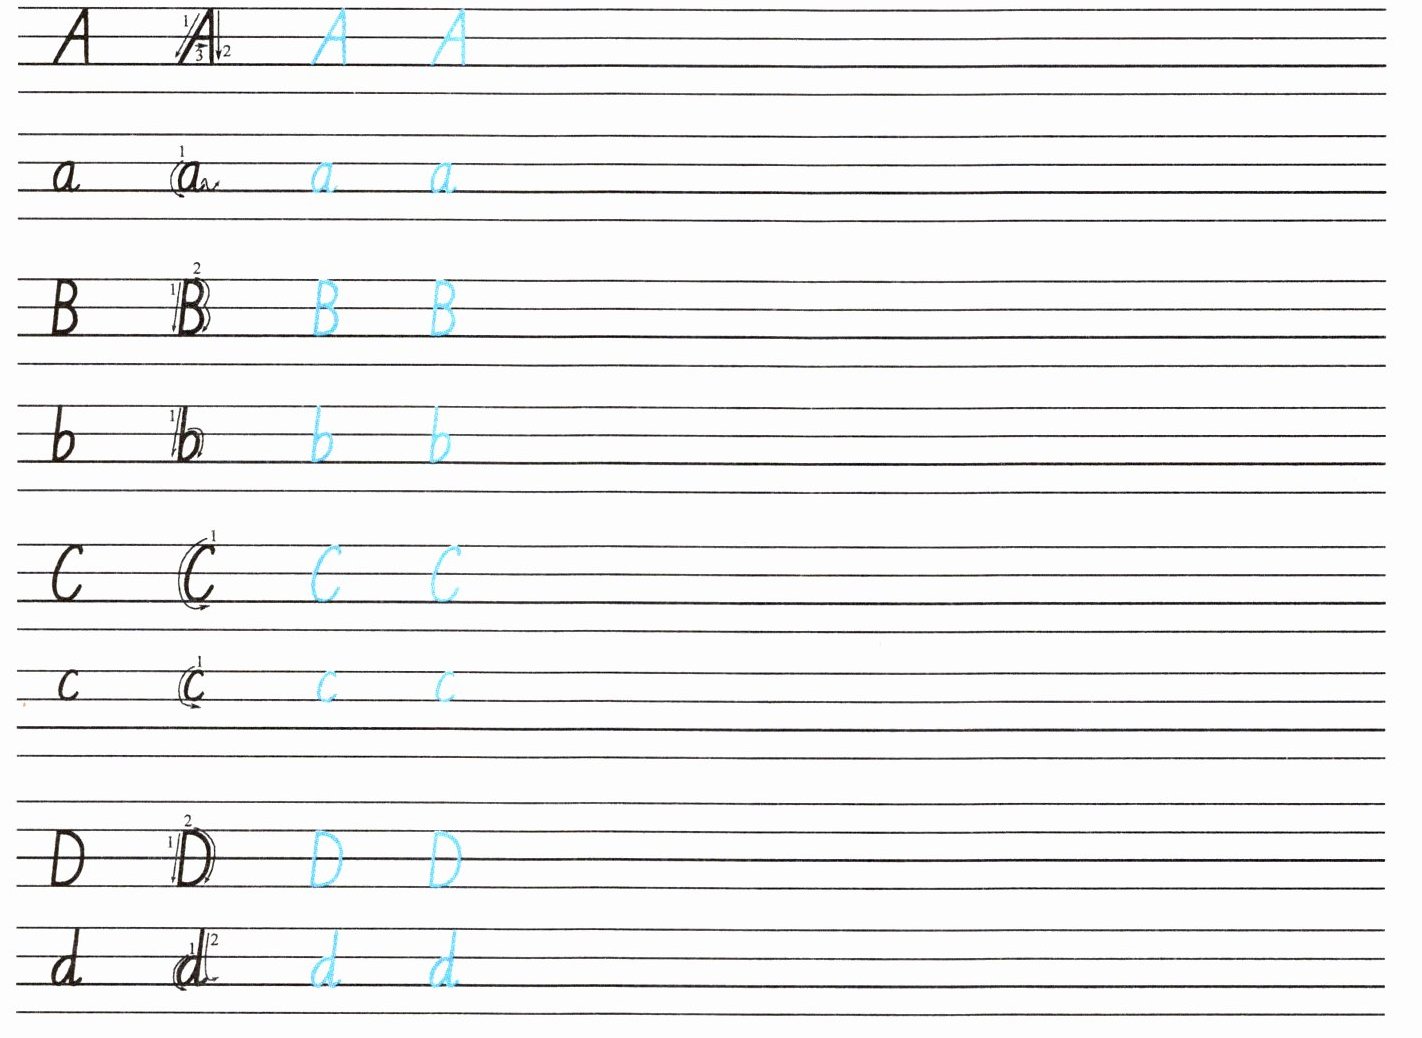 A A A A
a a a a
B B B B
b b b b
C C C C
c c c c
D D D D
d d d d